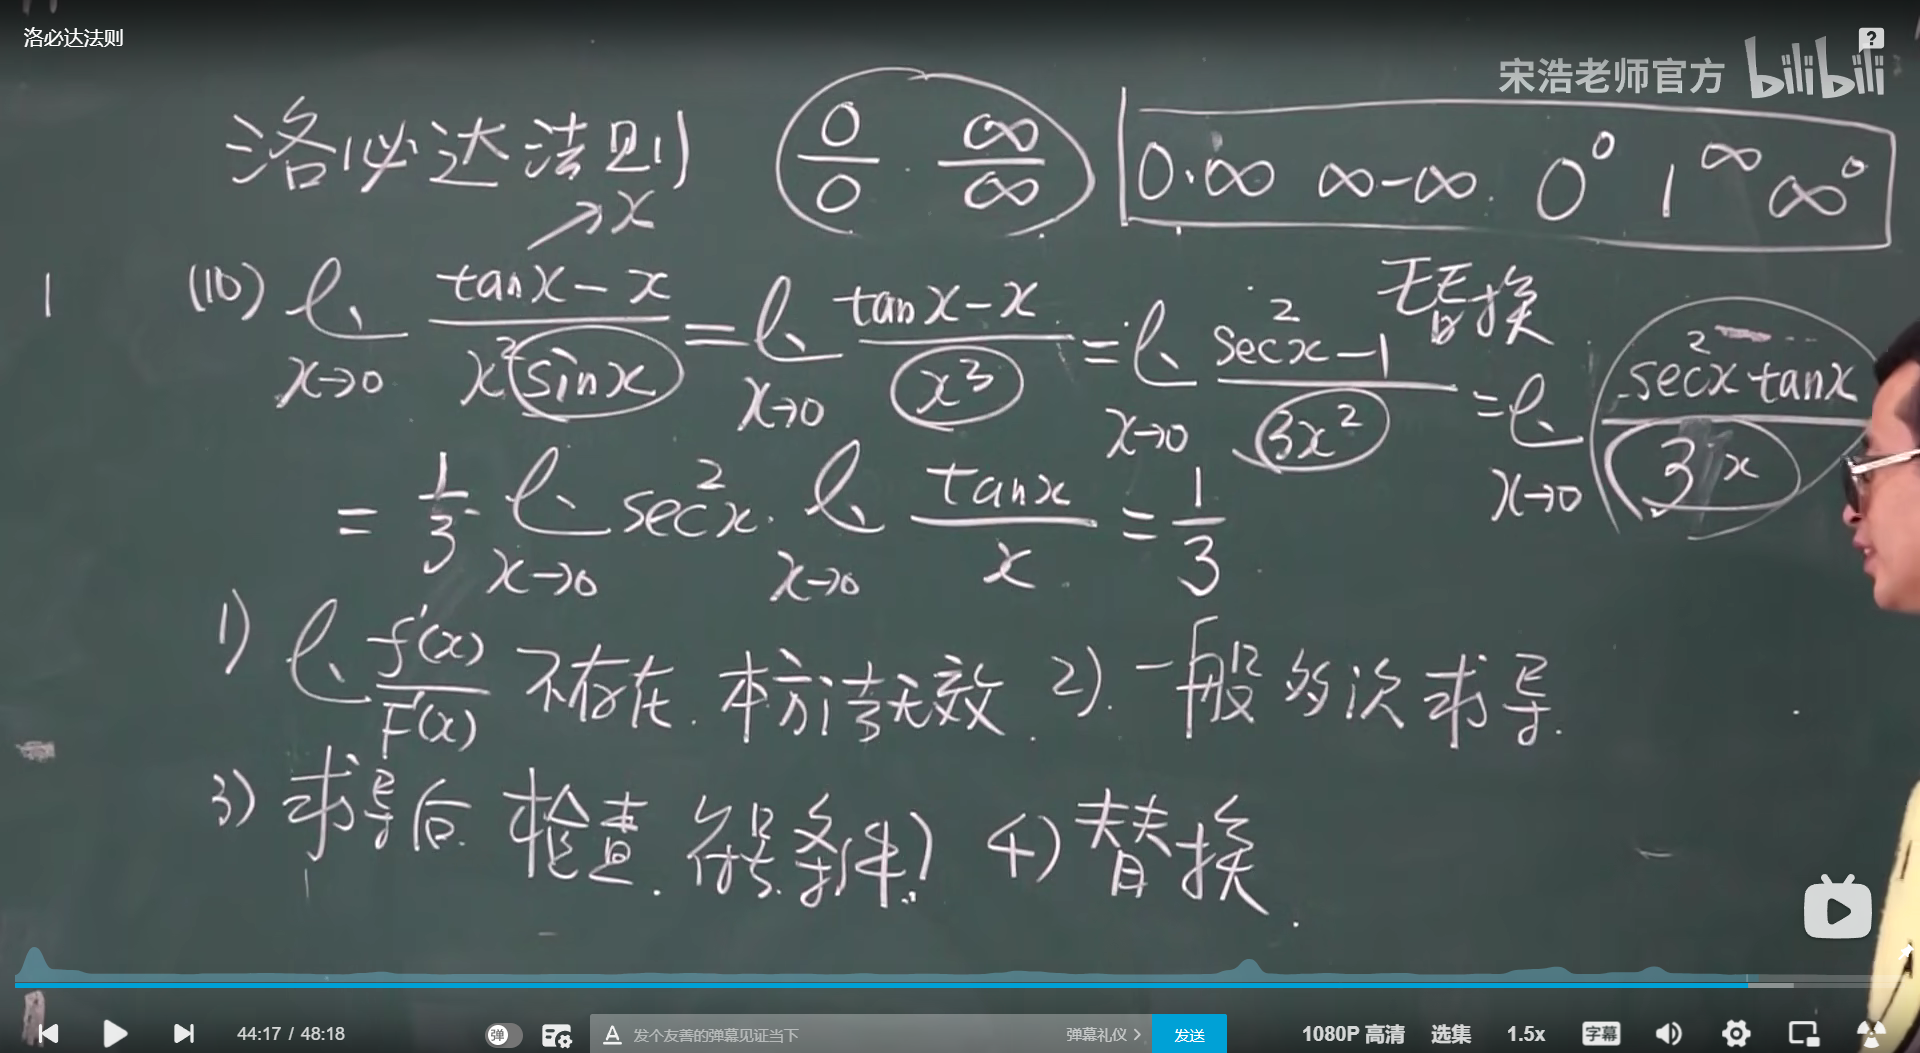 洛必达法则
宋浩老师官方 bilibili
洛必达法则 0/0 ∞/∞ 0·∞ ∞-∞ 0⁰ 1^∞ ∞⁰
↗x
1 (10) lim x→0 (tanx-x)/(x²sinx) = lim x→0 (tanx-x)/(x³) = lim x→0 (sec²x-1)/(3x²) 替换 = lim x→0 (sec²x tanx)/(3x)
= 1/3 lim x→0 sec²x · lim x→0 tanx/x = 1/3
1) lim f'(x)/F'(x) 不存在. 本方法无效. 2). 一般多次求导.
3) 求导后 检查. 符条件? 4) 替换.
44:17 / 48:18 弹 A 发个友善的弹幕见证当下 弹幕礼仪 > 发送 1080P 高清 选集 1.5x 字幕